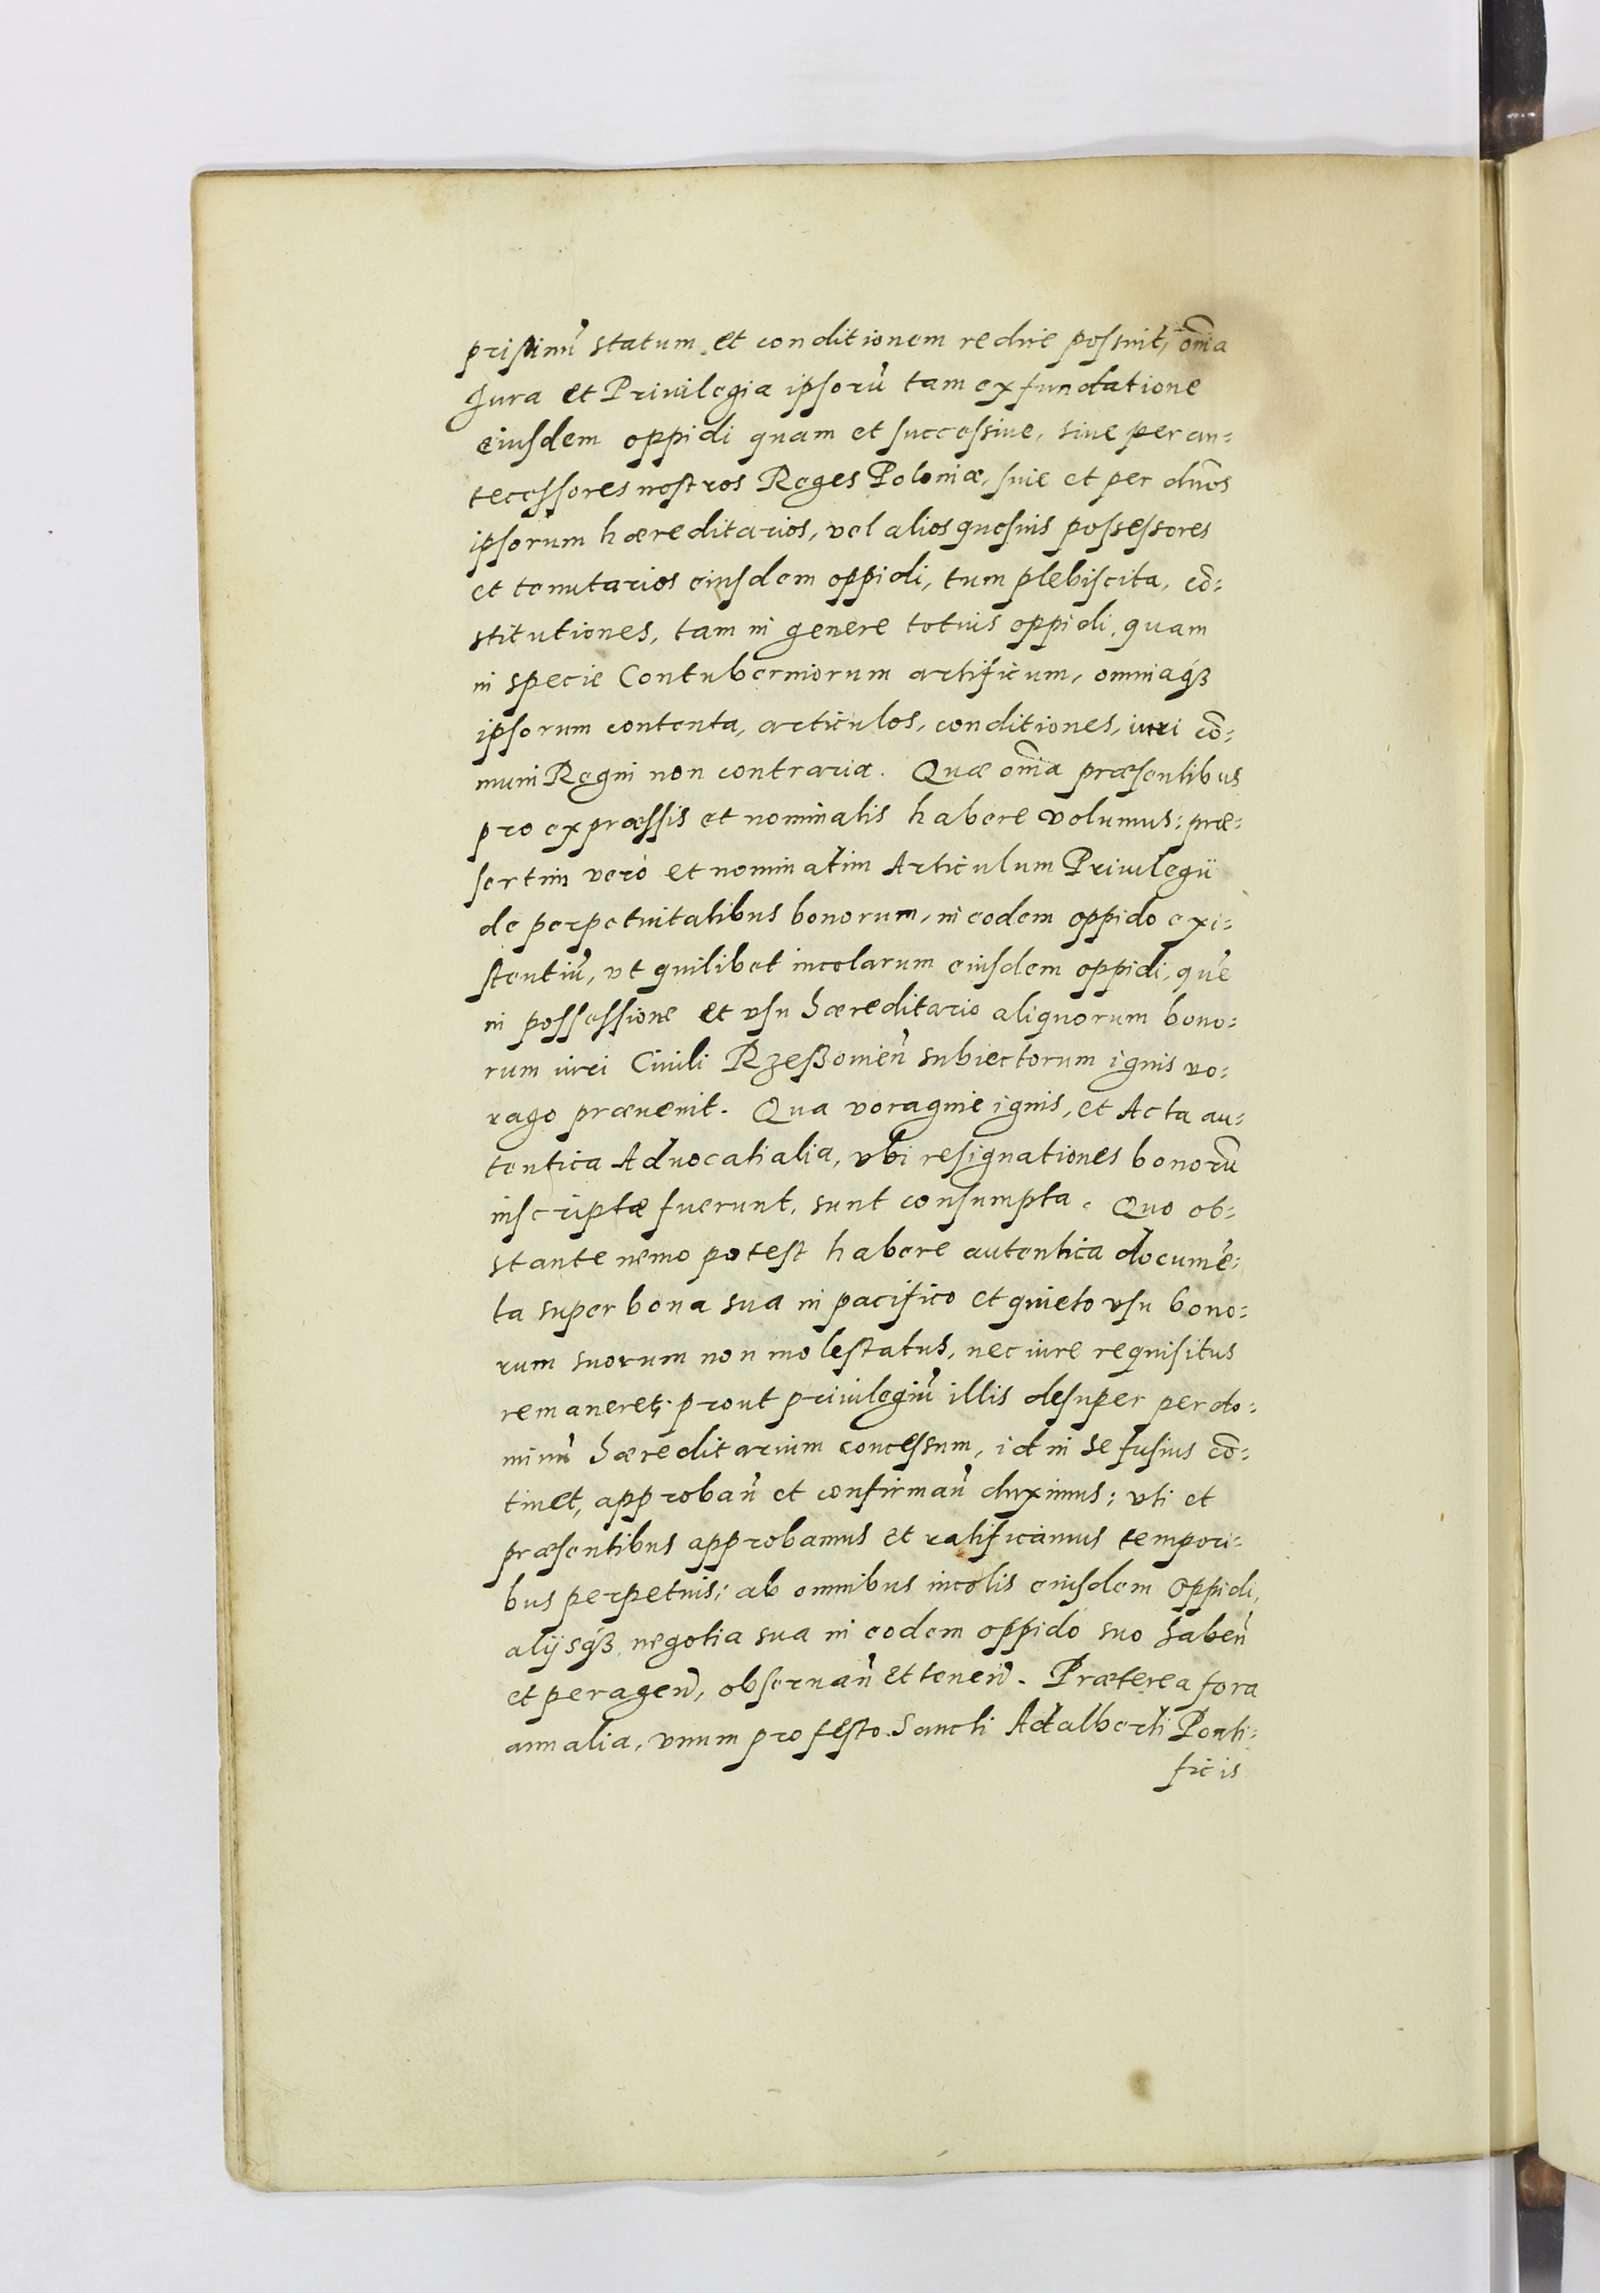 pristinũ statum et conditionem redire possint, om̃ia
Jura et Priuilegia ipsorũ tam ex fundatione
eiusdem oppidi quam et successiue, siue per an=
tecessores nostros Reges Poloniæ, siue et per dños
ipsorum hæreditarios, vel alios quosuis possessores
et tenutarios eiusdem oppidi, tum plebiscita, cõ=
stitutiones, tam in genere totius oppidi, quam
in specie Contuberniorum artificum, omniaqȝ
ipsorum contenta, articulos, conditiones, iuri cõ=
muni Regni non contraria. Quæ om̃ia præsentibus
pro expræssis et nominatis habere volumus: præ=
sertim verò et nominatim Articulum Priuilegii
de perpetuitatibus bonorum, in eodem oppido exi=
stentiũ, vt quilibet incolarum eiusdem oppidi, quẽ
in possessione et vsu hæreditario aliquorum bono=
rum iuri Ciuili Rzeßouieñ subiectorum ignis vo=
rago præuenit. Qua voragine ignis, et Acta au=
tentica Aduocatialia, vbi resignationes bonorũ
inscriptæ fuerunt, sunt consumpta. Quo ob=
stante nemo potest habere autentica documẽ=
ta super bona sua in pacifico et quieto vsu bono=
rum suorum non molestatus, nec iure requisitus
remaneret; prout priuilegiũ illis desuper per do=
minũ hæreditarium concessum, id in se fusius cõ=
tinet, approbañ et confirmañ duximus; vti et
præsentibus approbamus et ratificamus tempori=
bus perpetuis; ab omnibus incolis eiusdem oppidi,
alijsqȝ negotia sua in eodem oppido suo habeñ
et perageñ, obseruañ et teneñ. Præterea fora
annalia, vnum pro festo Sancti Adalberti Ponti=
ficis